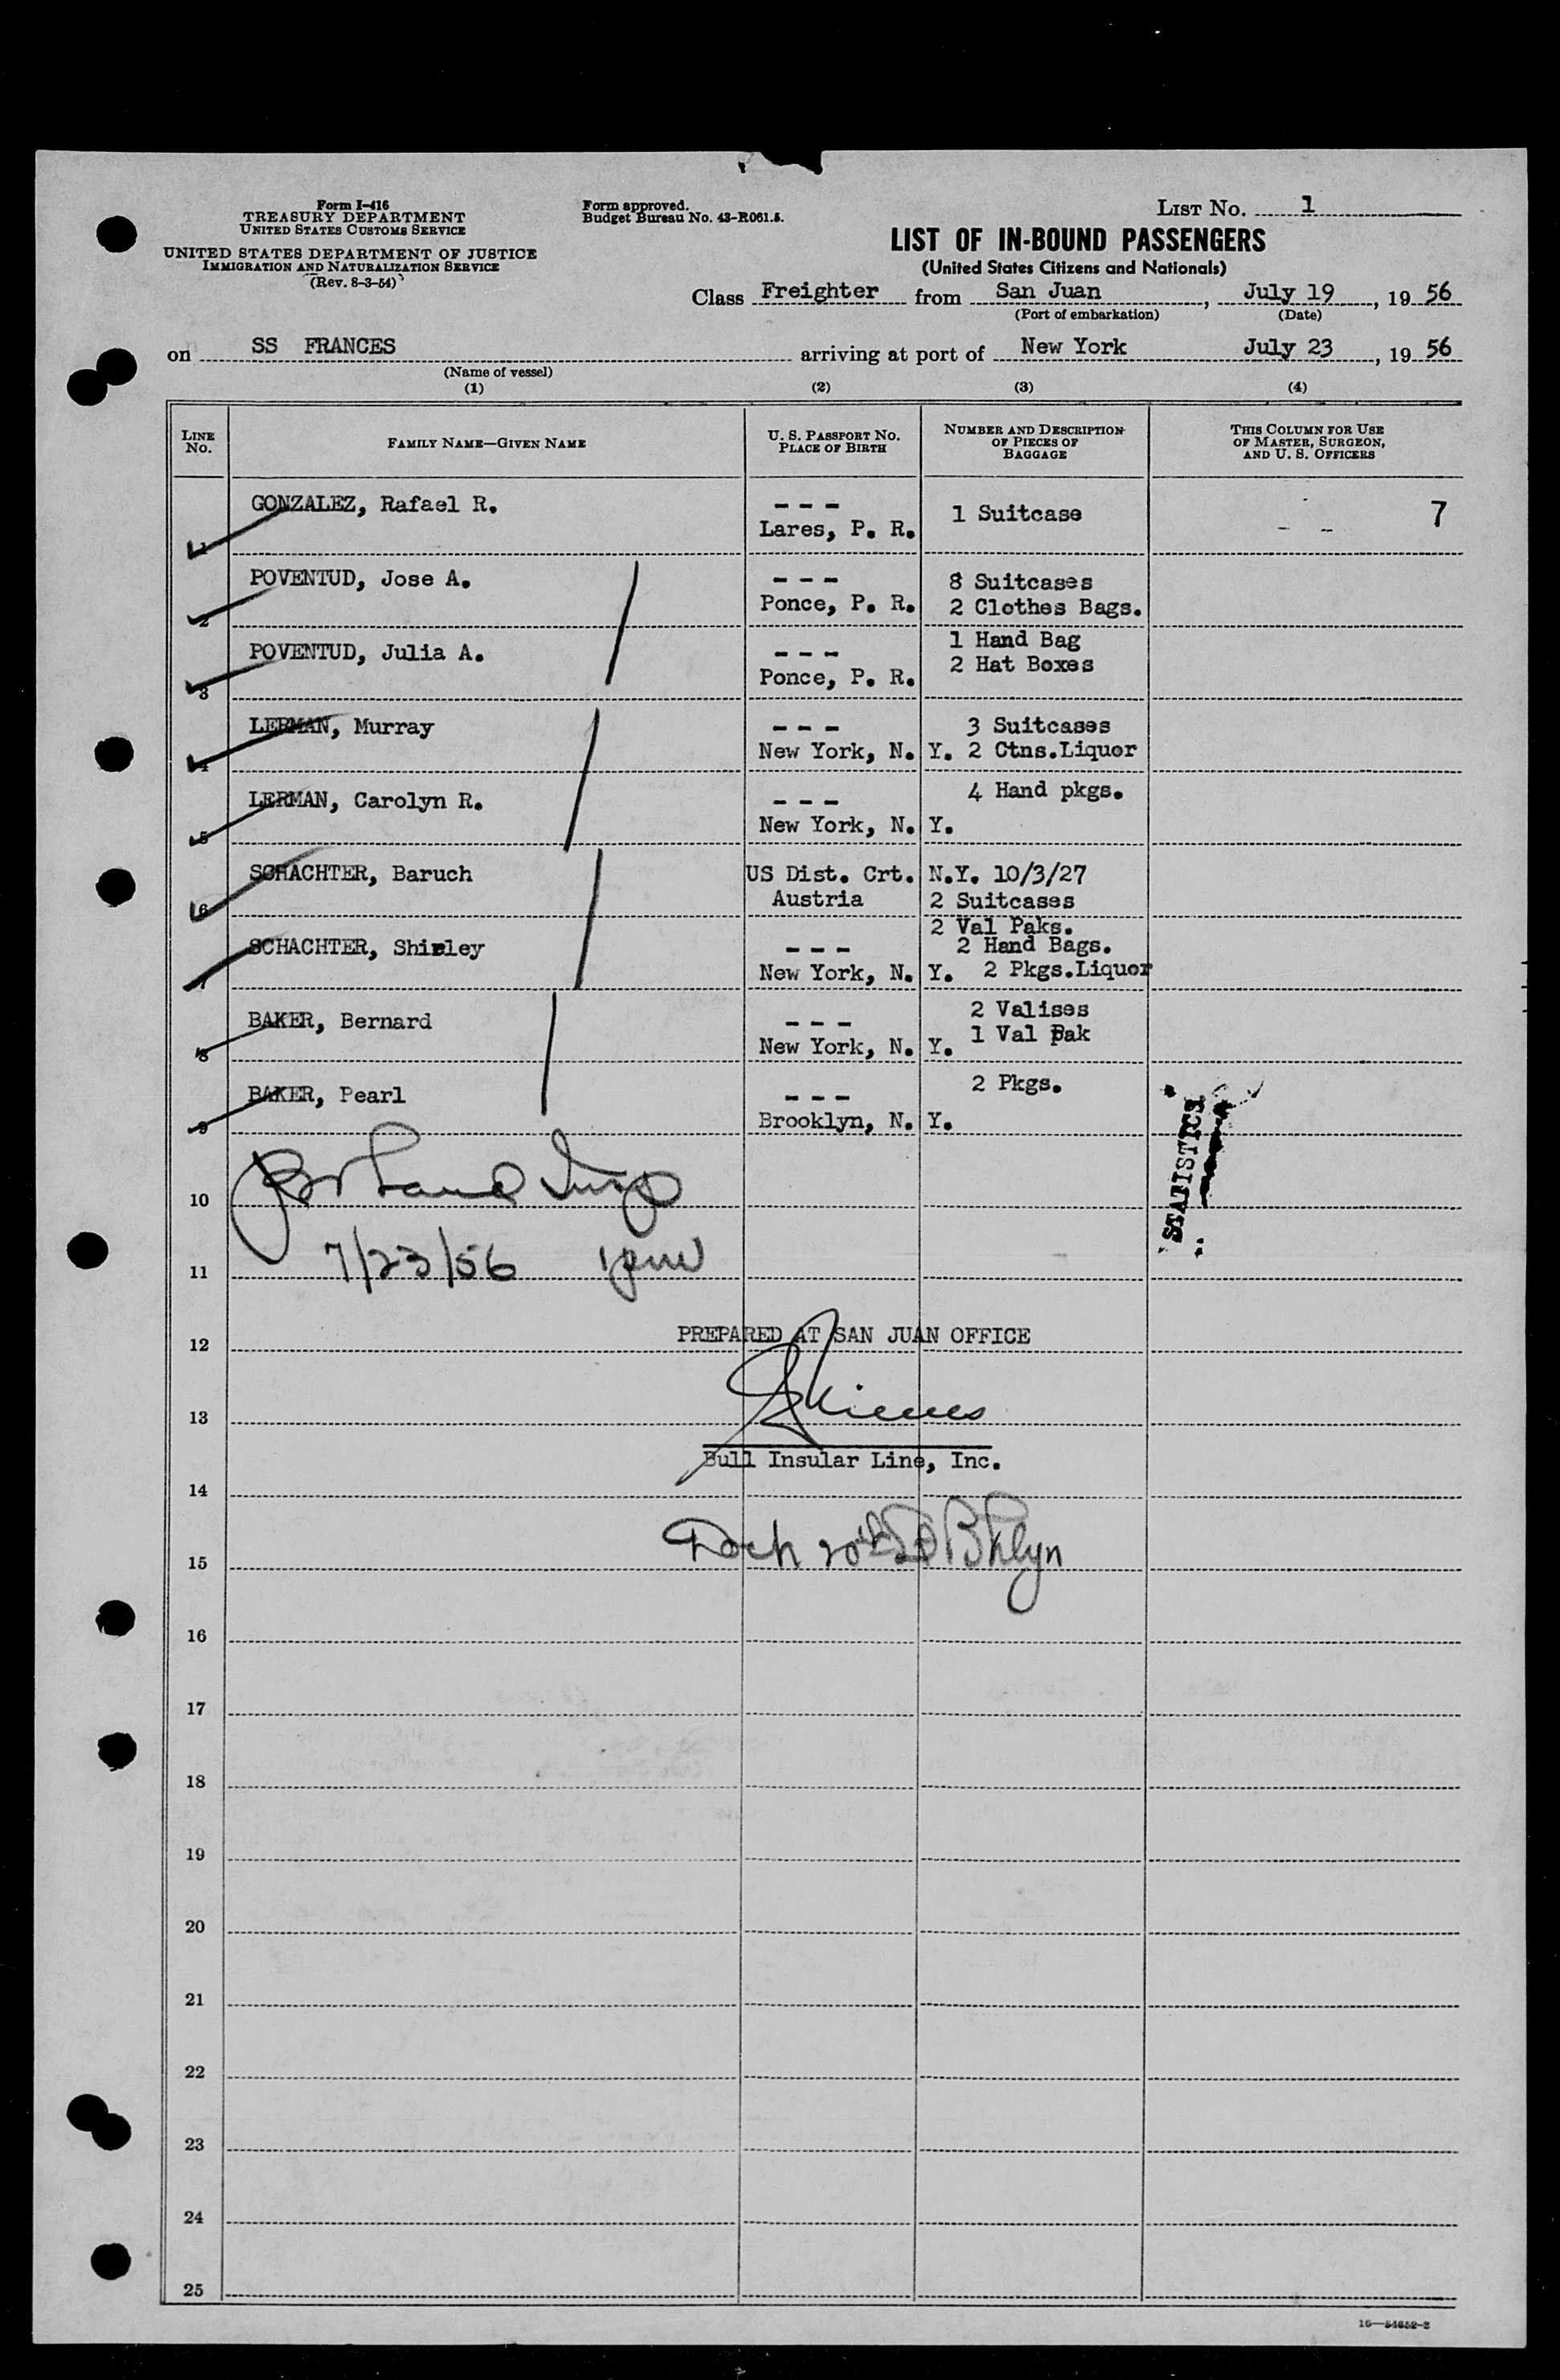 Form I-416
TREASURY DEPARTMENT
UNITED STATES CUSTOMS SERVICE
UNITED STATES DEPARTMENT OF JUSTICE
IMMIGRATION AND NATURALIZATION SERVICE
(Rev. 8-3-54)
Form approved.
Budget Bureau No. 43-R061.5.
LIST NO. 1
LIST OF IN-BOUND PASSENGERS
(United States Citizens and Nationals)
Class Freighter from San Juan, July 19, 19 56
(Port of embarkation) (Date)
on SS FRANCES arriving at port of New York July 23, 19 56
(Name of vessel)
(1) (2) (3) (4)
LINE NO.
FAMILY NAME—GIVEN NAME
U. S. PASSPORT NO.
PLACE OF BIRTH
NUMBER AND DESCRIPTION
OF PIECES OF
BAGGAGE
THIS COLUMN FOR USE
OF MASTER, SURGEON,
AND U. S. OFFICERS
GONZALEZ, Rafael R. - - - 1 Suitcase 7
1 Lares, P. R.
POVENTUD, Jose A. - - - 8 Suitcases
2 Ponce, P. R. 2 Clothes Bags.
POVENTUD, Julia A. - - - 1 Hand Bag
3 Ponce, P. R. 2 Hat Boxes
LERMAN, Murray - - - 3 Suitcases
4 New York, N. Y. 2 Ctns.Liquor
LERMAN, Carolyn R. - - - 4 Hand pkgs.
5 New York, N. Y.
SCHACHTER, Baruch US Dist. Crt. N.Y. 10/3/27
6 Austria 2 Suitcases
2 Val Paks.
SCHACHTER, Shirley - - - 2 Hand Bags.
7 New York, N. Y. 2 Pkgs.Liquor
BAKER, Bernard - - - 2 Valises
8 New York, N. Y. 1 Val Pak
BAKER, Pearl - - - 2 Pkgs.
9 Brooklyn, N. Y.
STATISTICS
10
11 7/23/56 1pm
12 PREPARED AT SAN JUAN OFFICE
13
Bull Insular Line, Inc.
14
15 Dock 20th St Bklyn
16
17
18
19
20
21
22
23
24
25